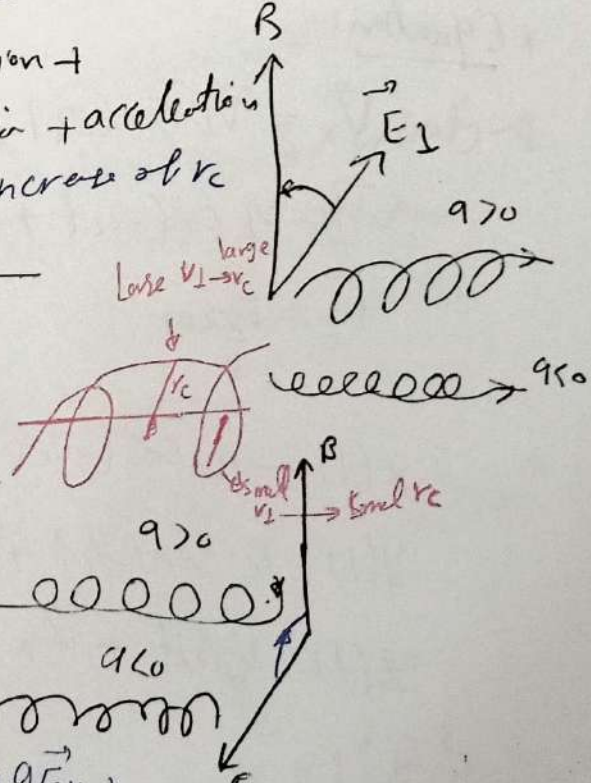 B
ion +
+ acceleration
increase of rc
E⊥
q>0
large
Large V⊥→rc
rc
q<0
B
small
V⊥ → Small rc
q>0
q<0
qE
E